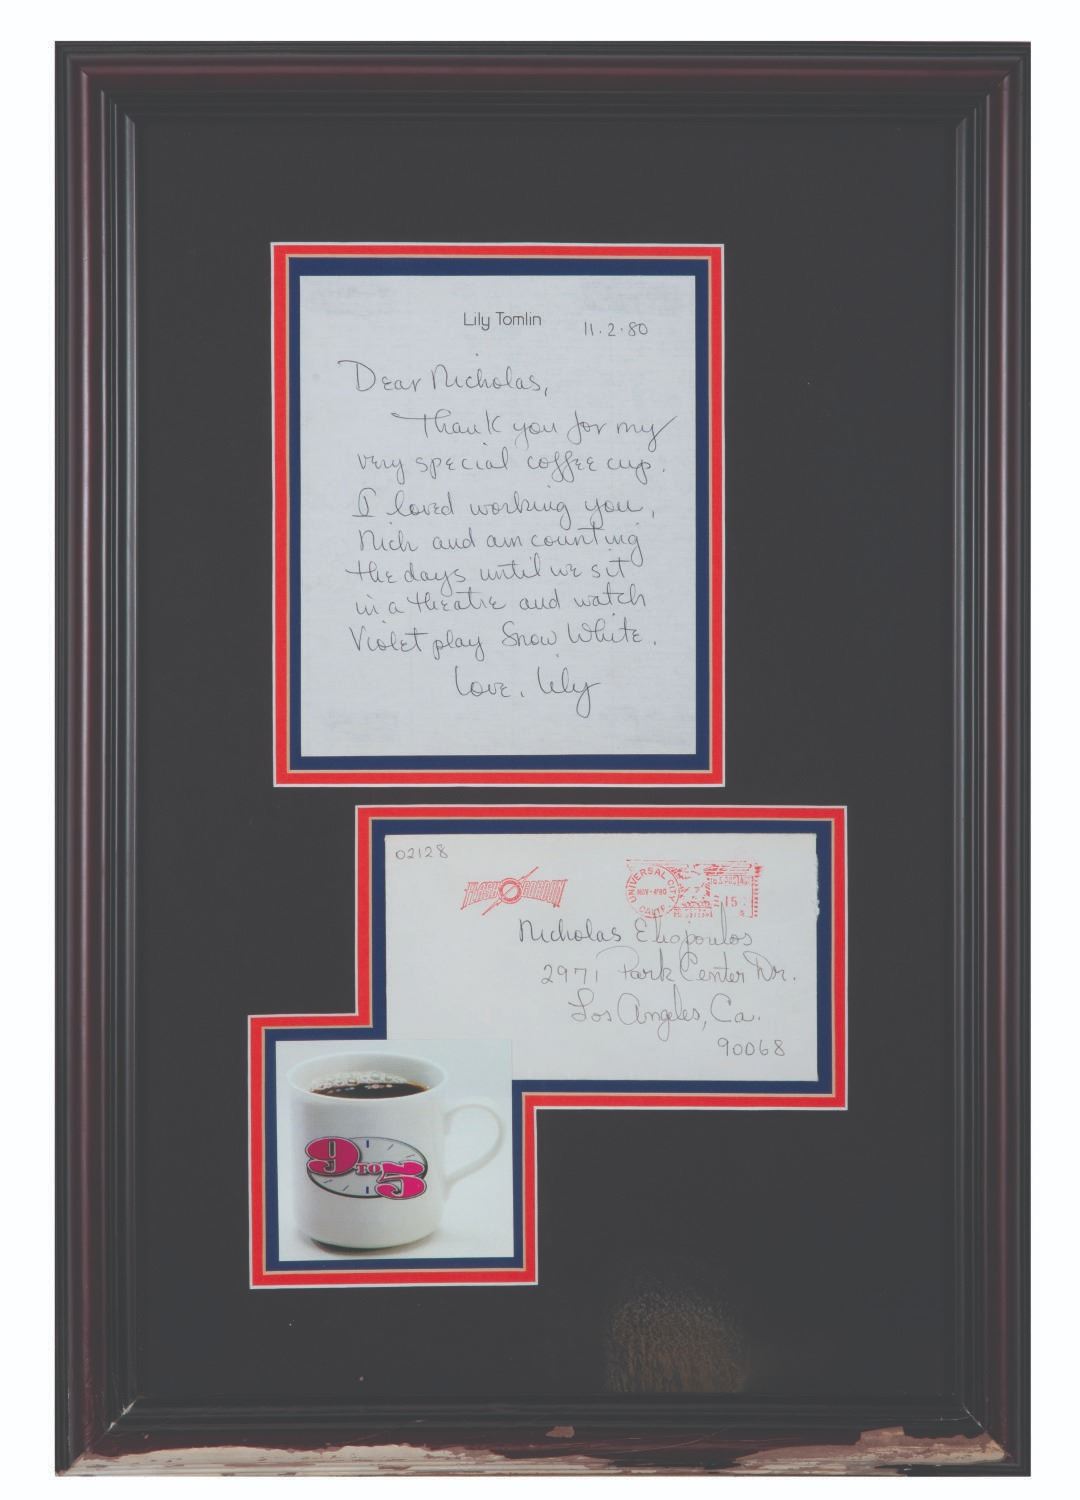 Lily Tomlin
11·2·80
Dear Nicholas,
Thank you for my
very special coffee cup.
I loved working you,
Nich and am counting
the days until we sit
in a theatre and watch
Violet play Snow White.
Love, Lily
02128
FLASH GORDON
UNIVERSAL CITY
NOV-4'80
CALIF
U.S. POSTAGE
15
Nicholas Eliopoulos
2971 Park Center Dr.
Los Angeles, Ca.
90068
9 TO 5